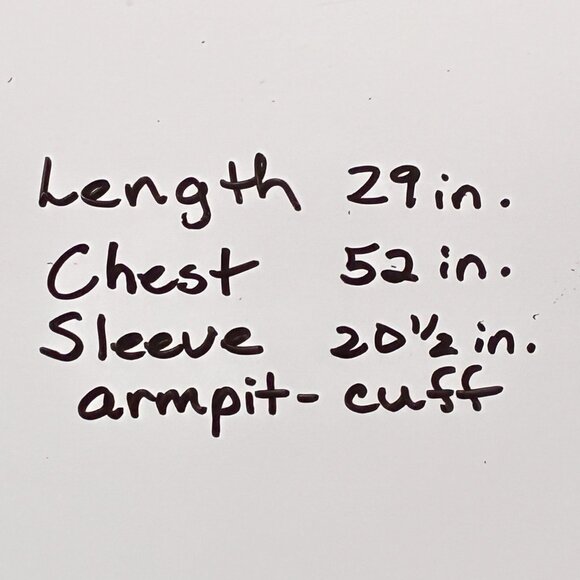 Length 29 in.
Chest 52 in.
Sleeve 20 1/2 in.
armpit - cuff